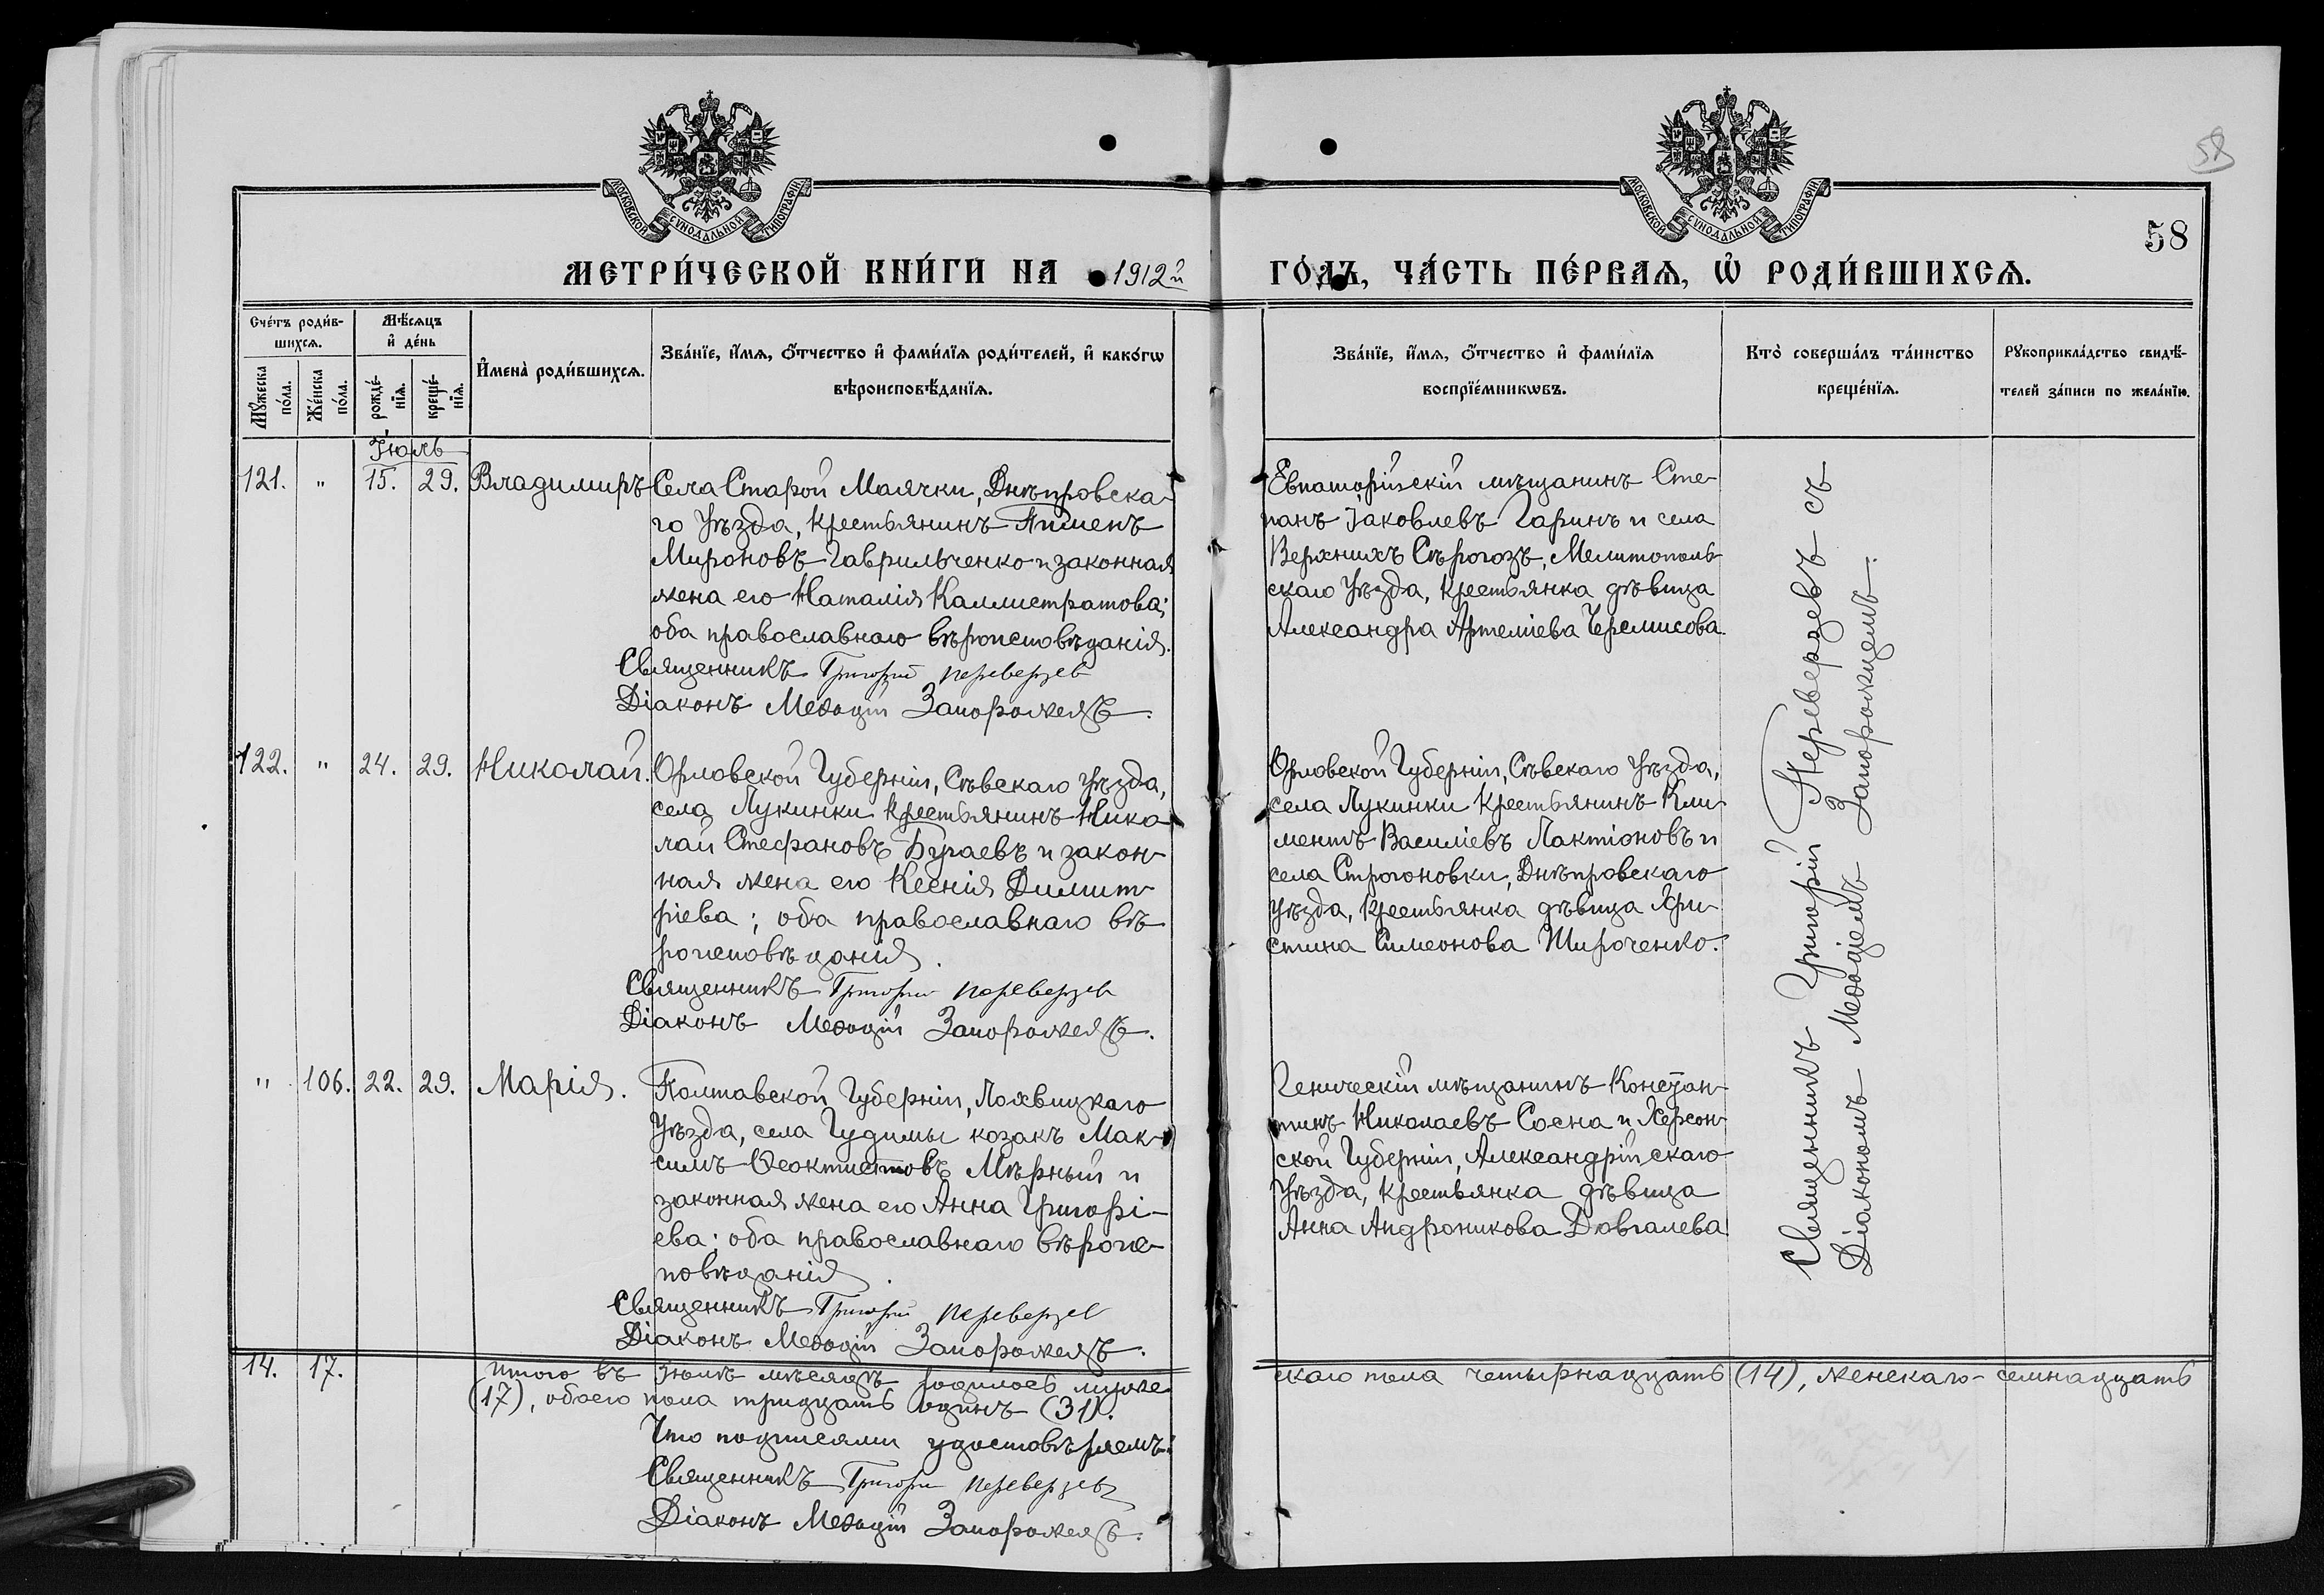 МОСКОВСКОЙ СѴНОДАЛЬНОЙ ТИПОГРАФІИ
МОСКОВСКОЙ СѴНОДАЛЬНОЙ ТИПОГРАФІИ
58
58
МЕТРИ́ЧЕСКОЙ КНИ́ГИ НА 1912й ГО́ДЪ, ЧА́СТЬ ПЕ́РВАѦ, Ѡ҆ РОДИ́ВШИХСѦ.
Сче́тъ роди́в-
шихсѧ.
Мꙋ́жеска
по́ла.
Же́нска
по́ла.
Мѣ́сѧцъ
и҆ де́нь
рожде́-
нїѧ.
креще́-
нїѧ.
И҆мена̀ роди́вшихсѧ.
Зва́нїе, и҆́мѧ, ѻ҆́тчество и҆ фамилі́ѧ роди́телей, и҆ како́гѡ
вѣроисповѣ́данїѧ.
Зва́нїе, и҆́мѧ, ѻ҆́тчество и҆ фами́лїѧ
воспрїе́мникѡвъ.
Кто̀ соверша́лъ та́инство
креще́нїѧ.
Рꙋкоприкла́дство свидѣ́-
телей за́писи по жела́нїю.
Іюль
121. " 15. 29. Владимиръ
Села Старой Маячки, Днѣпровска-
го уѣзда, крестьянинъ Пименъ
Мироновъ Гаврильченко и законная
жена его Наталія Каллистратова;
оба православнаго вѣроисповѣданія.
Священникъ Григорій Переверзев
Діаконъ Меѳодій Запорожецъ.
Евпаторійскій мѣщанинъ Сте-
панъ Іаковлевъ Гаринъ и села
Верхнихъ Сѣрогозъ, Мелитополь-
скаго уѣзда, крестьянка дѣвица
Александра Артеміева Черемисова.
122. " 24. 29. Николай.
Орловской Губерніи, Сѣвскаго уѣзда,
села Лукинки крестьянинъ Нико-
лай Стефановъ Бураевъ и закон-
ная жена его Ксенія Димит-
ріева; оба православнаго вѣ-
роисповѣданія.
Священникъ Григорій Переверзев
Діаконъ Меѳодій Запорожецъ.
Орловской Губерніи, Сѣвскаго уѣзда,
села Лукинки крестьянинъ Кли-
ментъ Василіевъ Лактіоновъ и
села Строгоновки, Днѣпровскаго
уѣзда, крестьянка дѣвица Хри-
стина Симеонова Широченко.
" 106. 22. 29. Марія.
Полтавской Губерніи, Лохвицкаго
уѣзда, села Гудимы козакъ Мак-
симъ Ѳеоктистовъ Мѣрный и
законная жена его Анна Григорі-
ева; оба православнаго вѣроис-
повѣданія.
Священникъ Григорій Переверзев
Діаконъ Меѳодій Запорожецъ.
Геническій мѣщанинъ Констан-
тинъ Николаевъ Сосна и Херсон-
ской Губерніи, Александрійскаго
уѣзда, крестьянка дѣвица
Анна Андроникова Довгалева
Священникъ Григорій Переверзевъ съ
Діакономъ Меѳодіемъ Запорожцемъ.
14. 17.
Итого въ Іюлѣ мѣсяцѣ родилось мужескаго пола четырнадцать (14), женскаго - семнадцать
(17), обоего пола тридцать одинъ (31).
Что подписями удостовѣряемъ:
Священникъ Григорій Переверзевъ
Діаконъ Меѳодій Запорожецъ.